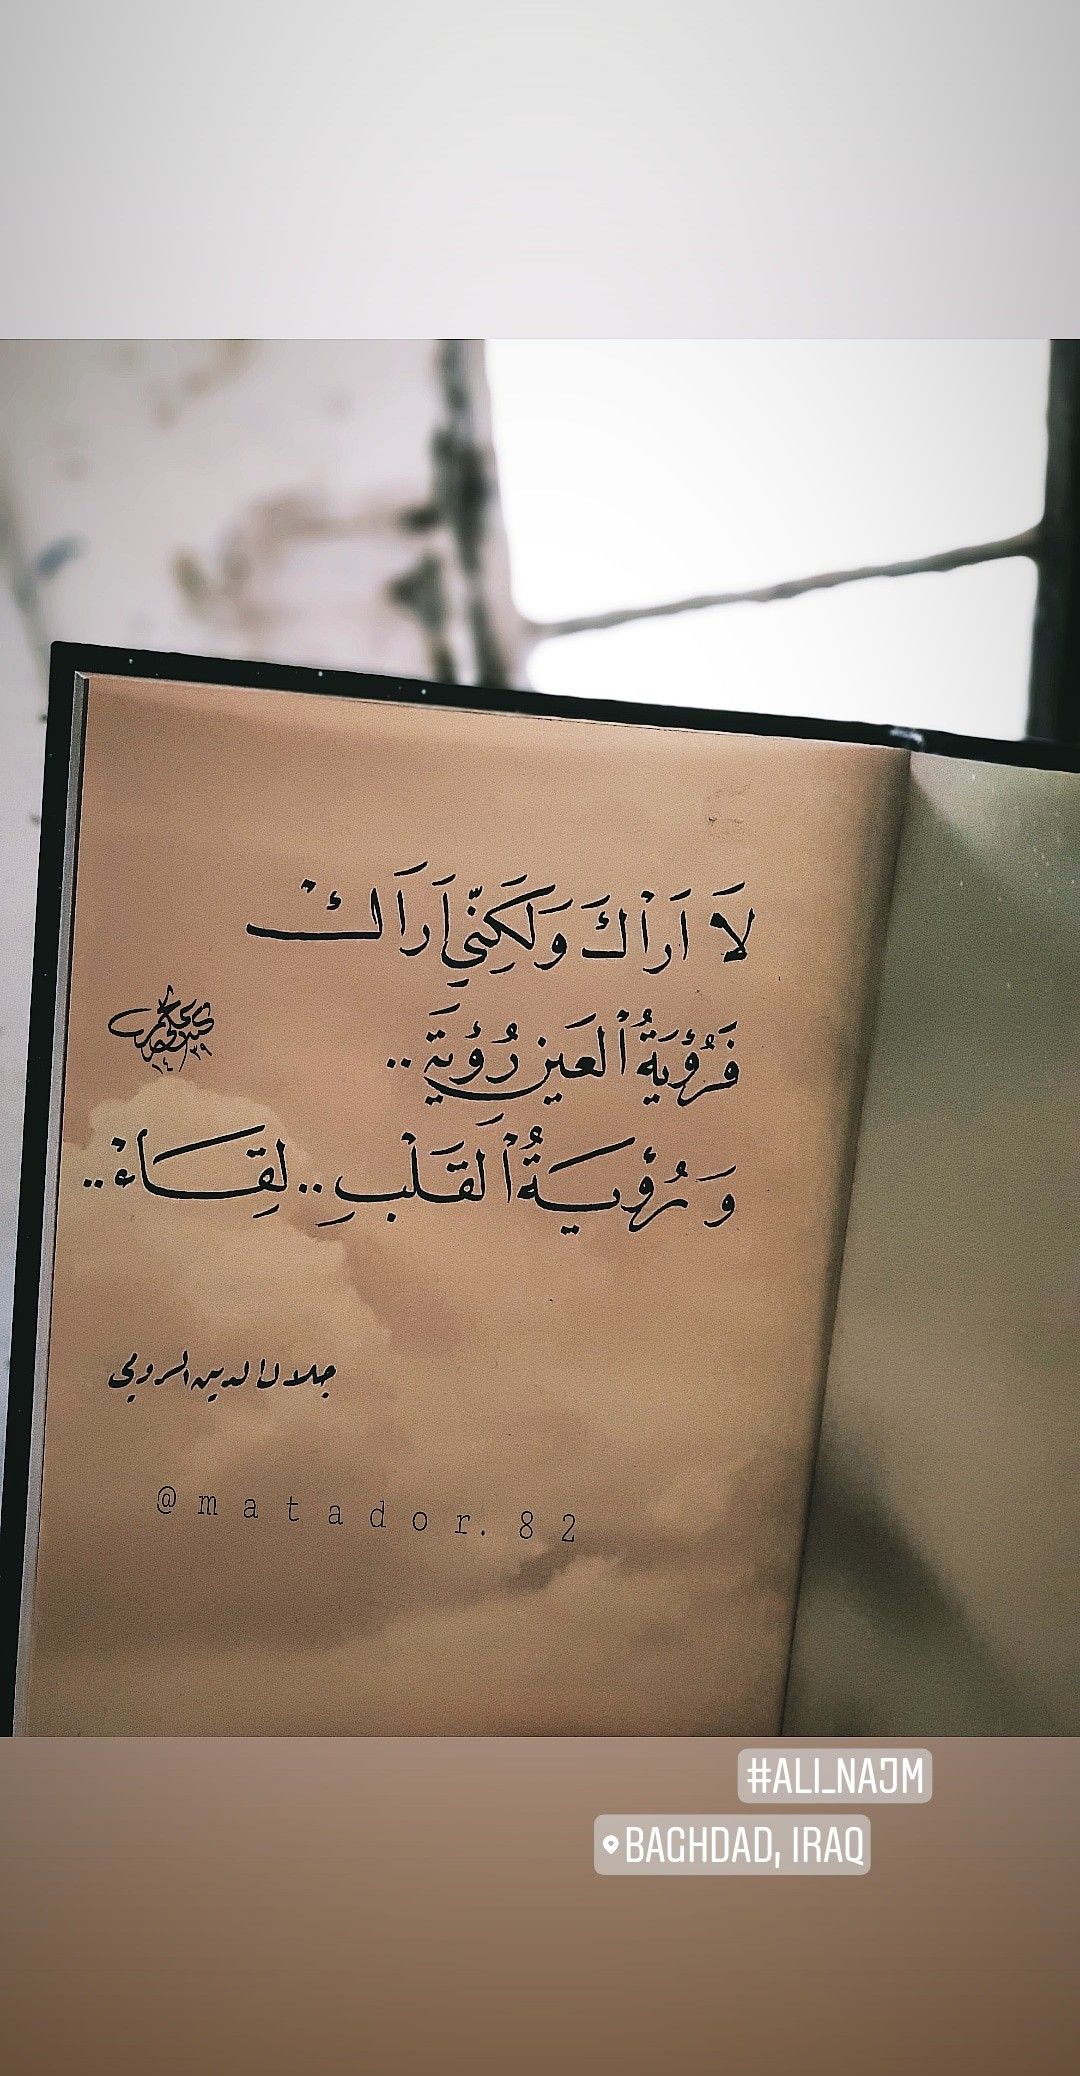 لَا اَرَاْكَ وَلَكِنّي اَرَاكْ
فَرُؤيَةُ اْلعَينِ رُؤيَة..
وَ رُؤْيَةُ اْلقَلْبِ.. لِقَاءْ..
١٤٣٩
جلال الدين الرومي
@matador.82
#ALI_NAJM
BAGHDAD, IRAQ